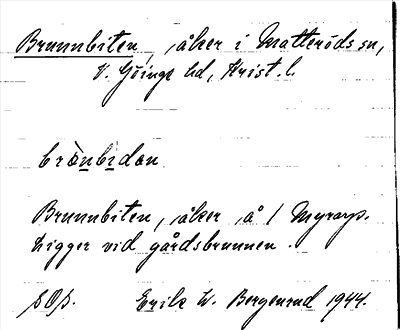 Brunnbiten, åker i Matteröds sn,
V. Göinge hd, Krist. l.
brònbidan
Brunnbiten, åker å 1 Myrarp.
Ligger vid gårdsbrunnen.
sOs. Erik W. Bergenrud 1944.